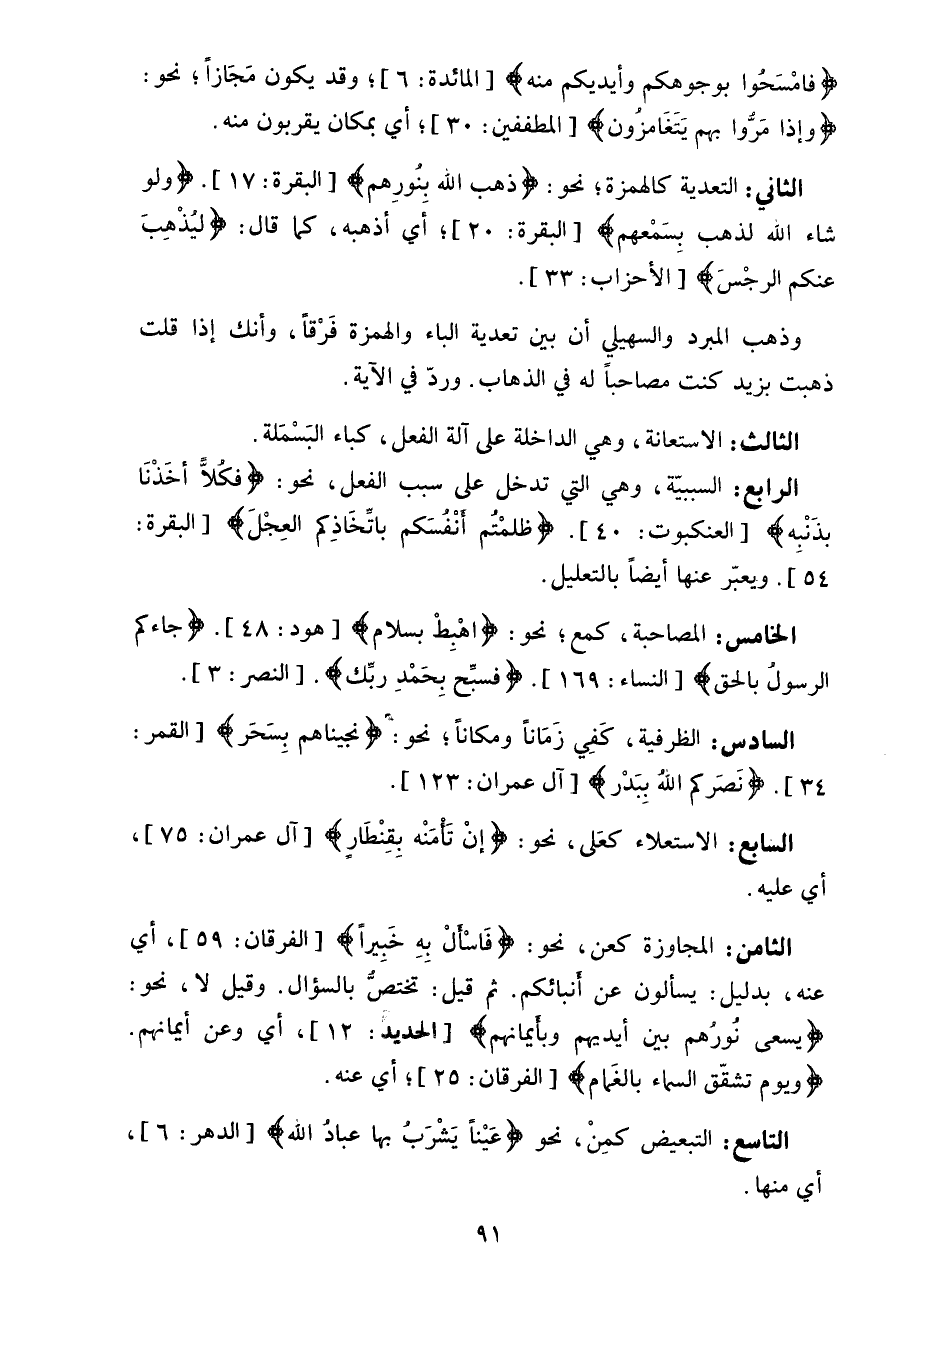 ﴿فامْسَحُوا بوجوهكم وأيديكم منه﴾ [المائدة: ٦]؛ وقد يكون مَجَازاً؛ نحو:
﴿وإذا مَرُّوا بهم يَتَغَامزُون﴾ [المطففين: ٣٠]؛ أي بمكان يقربون منه.
الثاني: التعدية كالهمزة؛ نحو: ﴿ذهب الله بِنُورِهم﴾ [البقرة: ١٧]. ﴿ولو
شاء الله لذهب بِسَمْعهم﴾ [البقرة: ٢٠]؛ أي أذهبه، كما قال: ﴿ليُذْهِبَ
عنكم الرجْسَ﴾ [الأحزاب: ٣٣].
وذهب المبرد والسهيلي أن بين تعدية الباء والهمزة فَرْقاً، وأنك إذا قلت
ذهبت بزيد كنت مصاحباً له في الذهاب. وردّ في الآية.
الثالث: الاستعانة، وهي الداخلة على آلة الفعل، كباء البَسْمَلة.
الرابع: السببيّة، وهي التي تدخل على سبب الفعل، نحو: ﴿فكُلاًّ أخَذْنَا
بذَنْبِه﴾ [العنكبوت: ٤٠]. ﴿ظلمْتُم أَنْفُسَكم باتِّخَاذِكم العِجْلَ﴾ [البقرة:
٥٤]. ويعبّر عنها أيضاً بالتعليل.
الخامس: المصاحبة، كمع؛ نحو: ﴿اهْبِطْ بسلام﴾ [هود: ٤٨]. ﴿جاءكم
الرسولُ بالحق﴾ [النساء: ١٦٩]. ﴿فسبِّح بِحَمْدِ ربِّك﴾. [النصر: ٣].
السادس: الظرفية، كَفِي زَمَاناً ومكاناً؛ نحو: ﴿نجيناهم بِسَحَر﴾ [القمر:
٣٤]. ﴿نَصَركم اللهُ بِبَدْر﴾ [آل عمران: ١٢٣].
السابع: الاستعلاء كعَلى، نحو: ﴿إنْ تَأْمَنْه بِقِنْطَارٍ﴾ [آل عمران: ٧٥]،
أي عليه.
الثامن: المجاوزة كعن، نحو: ﴿فَاسْأَلْ بِهِ خَبِيراً﴾ [الفرقان: ٥٩]، أي
عنه، بدليل: يسألون عن أَنبائكم. ثم قيل: تختصُّ بالسؤال. وقيل لا، نحو:
﴿يسعى نُورُهم بين أيديهم وبأَيمانهم﴾ [الحديد: ١٢]، أي وعن أيمانهم.
﴿ويوم تشقّق السماء بالغَمام﴾ [الفرقان: ٢٥]؛ أي عنه.
التاسع: التبعيض كمِنْ، نحو ﴿عَيْناً يَشْرَبُ بها عبادُ الله﴾ [الدهر: ٦]،
أي منها.
٩١